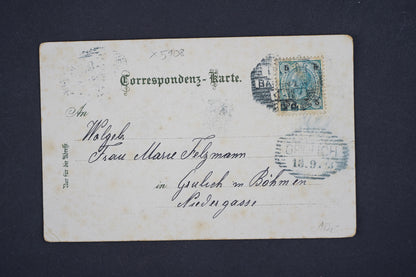 x 5908
Correspondenz-Karte.
An
Wolgeb.
Frau Marie Felzmann
in Grulich in Böhmen
Niedergasse
Nur für die Adresse
GRULICH
18.9.